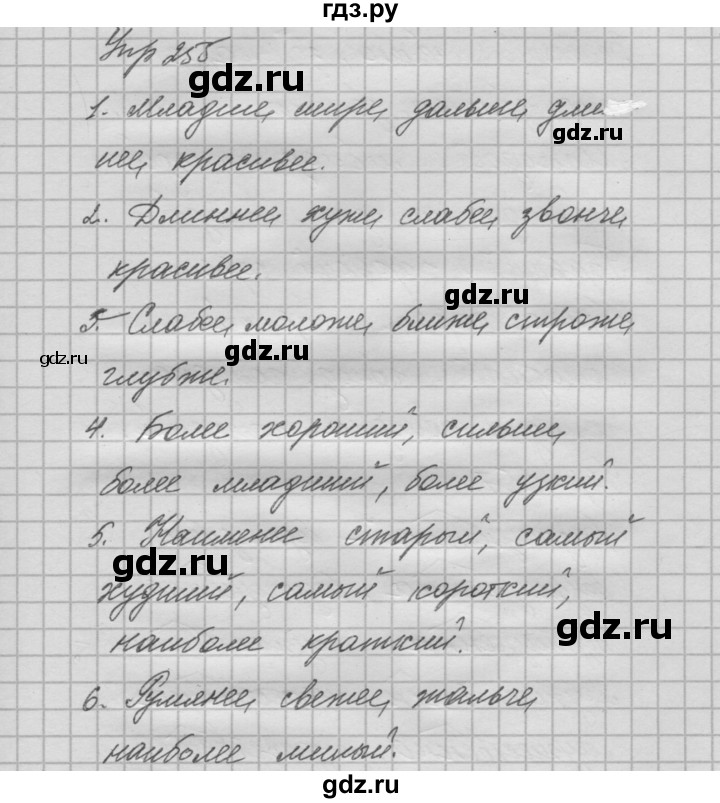 гдз.ру
Упр 255
gdz.ru
1. Младше, шире, дальше, дли
gdz.ru
нее, красивее.
2. Длиннее, хуже, слабее, звонче,
красивее.
gdz.ru
3. Слабее, моложе, ближе, строже,
gdz.ru
gdz.ru
глубже.
4. Более хороший, сильнее,
более младший, более узкий.
5. Наименее старый, самый
gdz.ru
худший, самый короткий,
gdz.ru
наиболее краткий.
6. Румянее, свежее, жальче,
наиболее милый.
gdz.ru